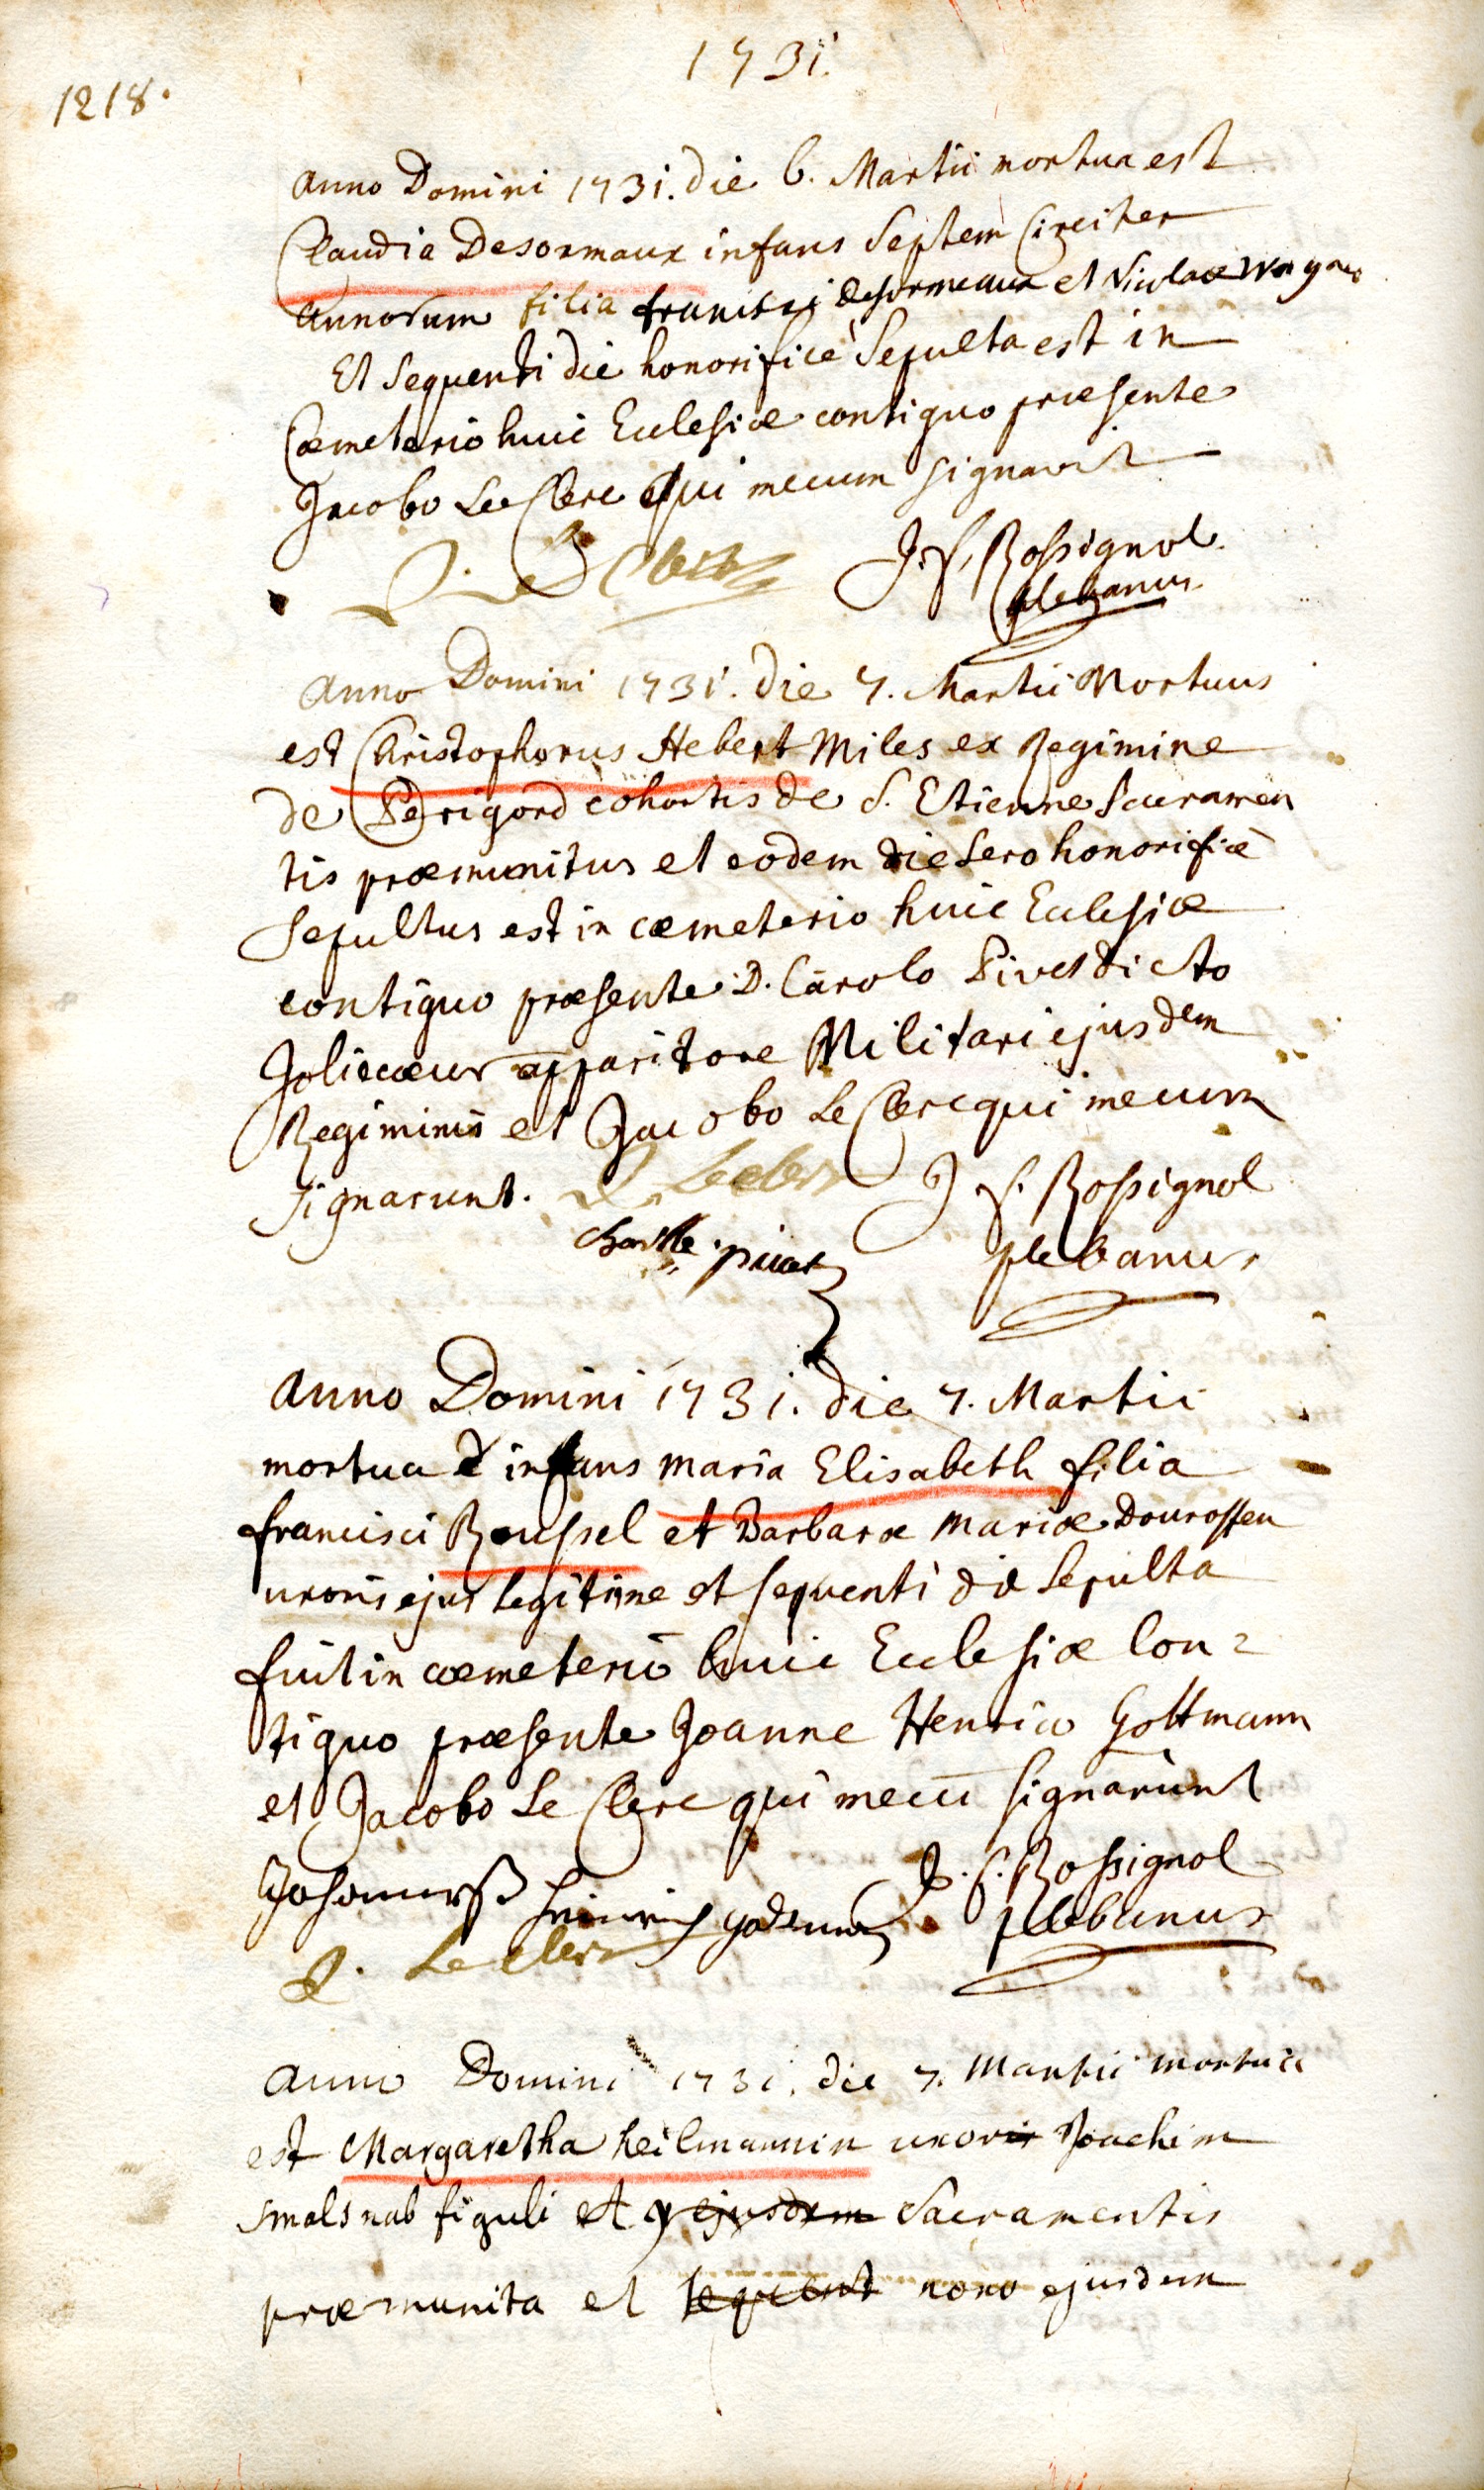 1731.
1218.
Anno Domini 1731. die 6. Martii mortua est
Claudia Desormaux infans Septem Circiter
annorum filia francisci desormeaux et Nicolae
Et Sequenti die honorificè Sepulta est in
Cœmeterio huic Ecclesiæ contiguo præsente
Jacobo Le Clerc qui mecum signavit
J. Le Clerc J. f. Rossignol
plebanus
Anno Domini 1731. die 7. Martii Mortuus
est Christophorus Hebert Miles ex Regimine
de Perigord cohortis de S. Etienne Sacramen
tis præmunitus et eodem die sero honorificè
Sepultus est in cœmeterio huic Ecclesiæ
contiguo præsente D. Carolo Pivet dicto
Joliecœur apparitore Militari ejusdem
Regiminis et Jacobo Le Clerc qui mecum
signarunt. J. Leclerc J. f. Rossignol
Charle pivet plebanus
Anno Domini 1731. die 7. Martii
mortua ē infans maria Elisabeth filia
francisci Roussel et Barbaræ mariæ Dourossen
uxoris ejus legitime et sequenti die Sepulta
fuit in cœmeterio huic Ecclesiæ Con=
tiguo præsente Joanne Henrico Gottmann
et Jacobo Le Clerc qui mecū signarunt
J. f. Rossignol
plebanus
J. Leclerc
Anno Domini 1731. die 7. Martii mortua
est Margaretha heilmannin uxor Joachim
smalsnab figuli et ejusdem Sacramentis
præmunita et sequent nono ejusdem